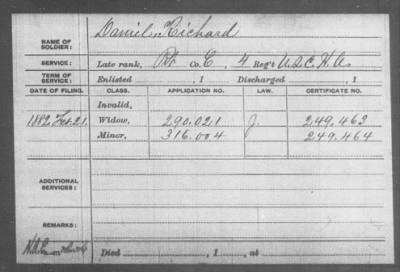 NAME OF SOLDIER: Daniel, Richard
SERVICE: Late rank, Pvt Co. C, 4 Reg't U.S.C.H.A.
TERM OF SERVICE: Enlisted , 1 Discharged , 1
DATE OF FILING. CLASS. APPLICATION NO. LAW. CERTIFICATE NO.
Invalid,
1882 Feb. 21. Widow, 290.021 J. 249.463
Minor, 316.004 249.464
ADDITIONAL SERVICES:
REMARKS:
Died , 1 , at